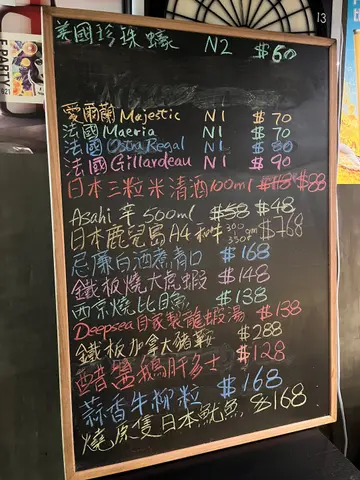 美國珍珠蠔 N2 $60
愛爾蘭 Majestic N1 $70
法國 Maeria N1 $70
法國 Ostra Regal N1 $80
法國 Gillardeau N1 $90
日本三粒米清酒100ml $118 $88
Asahi 羊 500ml $58 $48
日本鹿兒島A4和牛 300gm | 350g $768
忌廉白酒煮青口 $168
鐵板燒大虎蝦 $148
西京燒比目魚 $138
Deepsea自家製龍蝦湯 $138
鐵板加拿大豬鞍 $288
醋鹽鵝肝多士 $128
蒜香牛柳粒 $168
燒原隻日本魷魚 $168
E PARTY
021
13